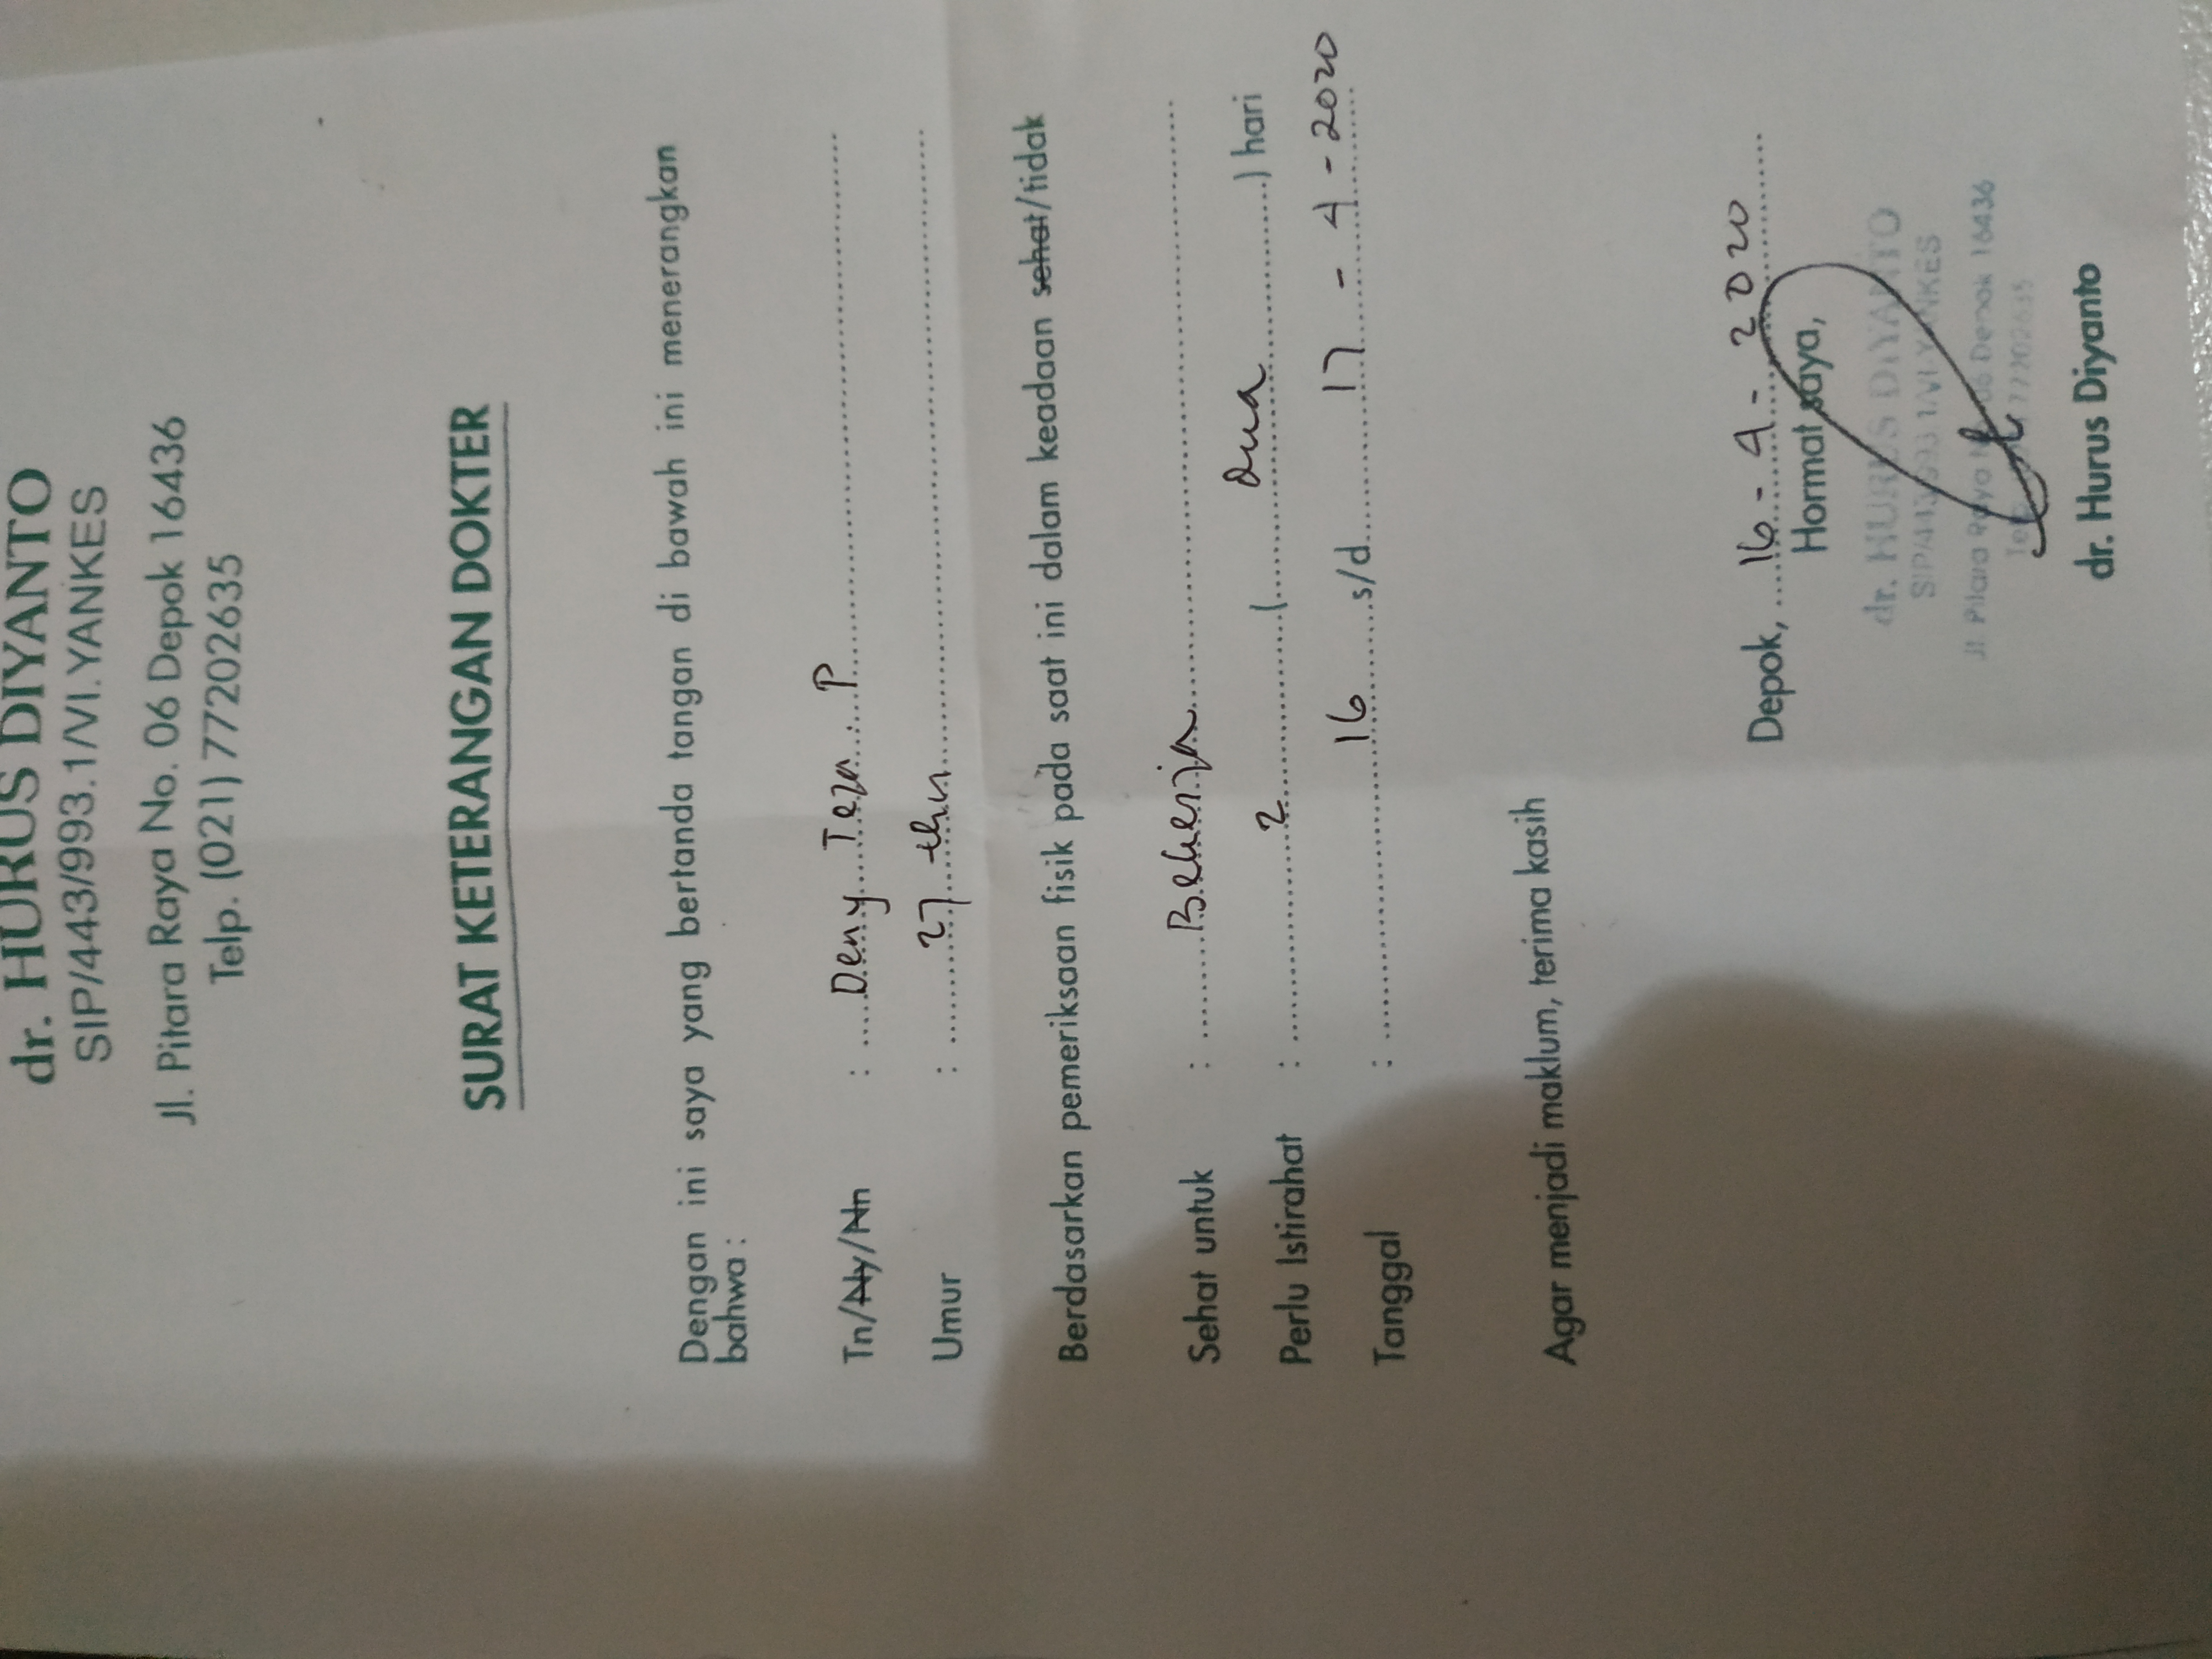 dr. HURUS DIYANTO
SIP/443/993.1/VI.YANKES
Jl. Pitara Raya No. 06 Depok 16436
Telp. (021) 77202635
SURAT KETERANGAN DOKTER
Dengan ini saya yang bertanda tangan di bawah ini menerangkan
bahwa :
Tn/Ny/Nn : Deny Teza. P
Umur : 27 thn
Berdasarkan pemeriksaan fisik pada saat ini dalam keadaan sehat/tidak
Sehat untuk : Bekerja
Perlu Istirahat : 2 ( dua ) hari
Tanggal : 16 s/d 17 - 4 - 2020
Agar menjadi maklum, terima kasih
Depok, 16 - 4 - 2020
Hormat saya,
dr. HURUS DIYANTO
SIP/443/993.1/VI.YANKES
Jl. Pitara Raya No. 06 Depok 16436
Telp. (021) 77202635
dr. Hurus Diyanto